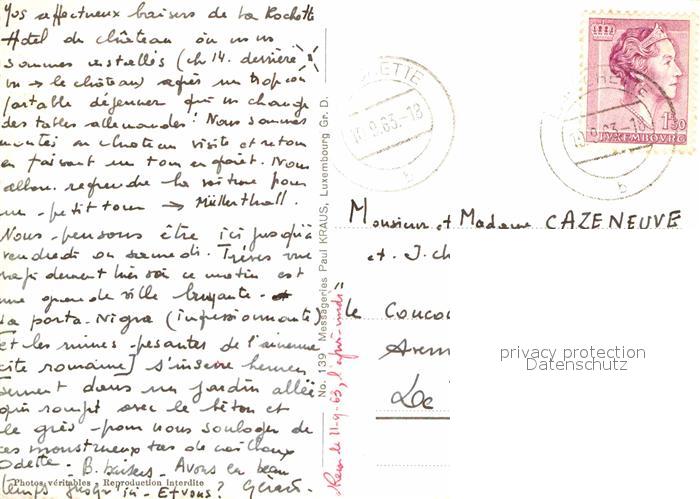 Vos affectueux baisers de La Rochette
Hôtel du château où nous
sommes installés (ch 14. derrière
le château) après un trop con
fortable déjeuner qui nous change
des tables allemandes! Nous sommes
montés au château visite et retour
en faisant un tour en forêt. Nous
allons reprendre la voiture pour
un petit tour → Müllerthall.
Nous pensons être ici jusqu'à
vendredi ou samedi. Trèves vue
rapidement hier soir ce matin est
une grande ville bruyante -
La porta-Nigra (impressionnante)
et les ruines pesantes de l'ancienne
cité romaine s'insère heureu
sement dans un jardin allée
qui rompt avec le béton et
le grès - pour nous soulager de
ces monstrueux tas de cailloux
Odette - B. baisers - Avons eu beau
temps jusqu'ici - Et vous? Gérard.
Photos véritables - Reproduction interdite
No. 139 Messageries Paul KRAUS, Luxembourg Gr. D.
le 11-9-63, l'après-midi
9.63-18
b
1F50
LUXEMBOURG
Monsieur et Madame CAZENEUVE
et J. ch
le Coucou
Aven
La
privacy protection
Datenschutz